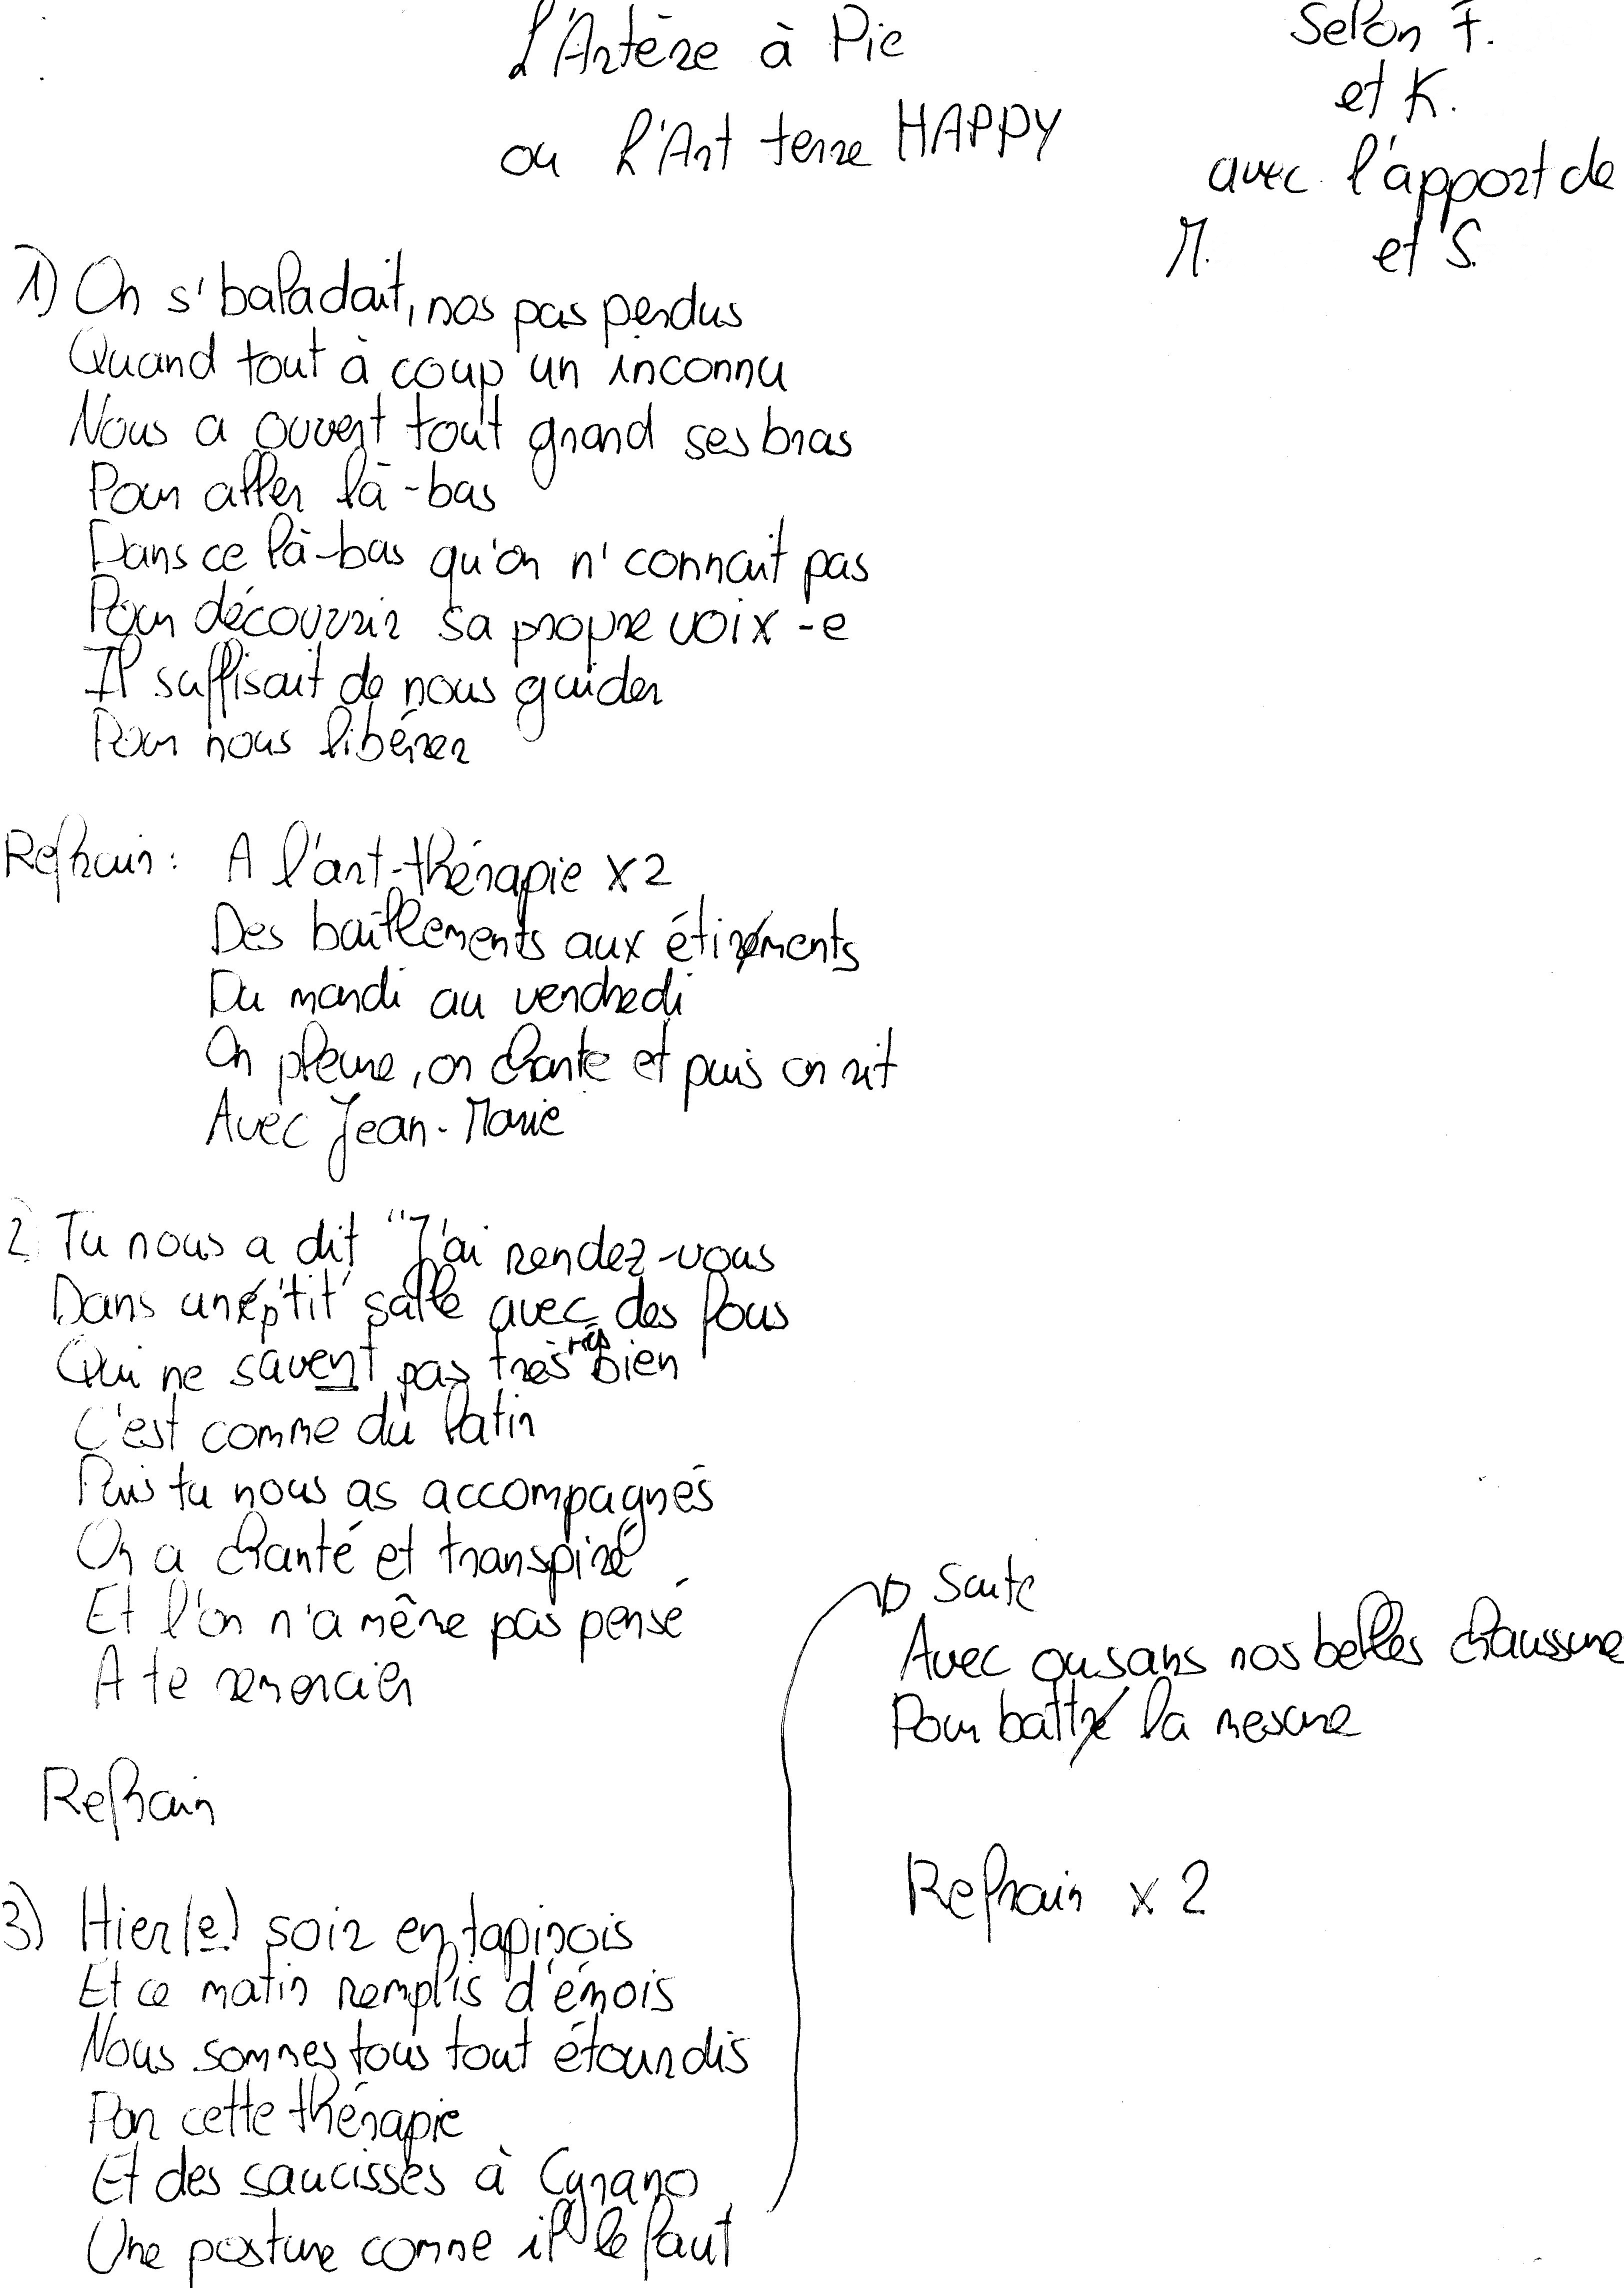 L'Artère à Pie
ou L'Art terre HAPPY
Selon F.
et K.
avec l'apport de
M. et S.
1) On s'baladait, nos pas perdus
Quand tout à coup un inconnu
Nous a ouvert tout grand ses bras
Pour aller là-bas
Dans ce là-bas qu'on n'connait pas
Pour découvrir sa propre voix-e
Il suffisait de nous guider
Pour nous libérer
Refrain: A l'art-thérapie x2
Des baillements aux étirements
Du mardi au vendredi
On pleure, on chante et puis on rit
Avec Jean-Marie
2. Tu nous a dit "J'ai rendez-vous
Dans une p'tit' salle avec des fous
Qui ne savent pas très très bien
C'est comme du latin
Puis tu nous as accompagnés
On a chanté et transpiré
Et l'on n'a même pas pensé
A te remercier
Refrain
3) Hier(e) soir en tapinois
Et ce matin remplis d'émois
Nous sommes tous tout étourdis
Par cette thérapie
Et des saucisses à Cyrano
Une posture comme il le faut
Suite
Avec ou sans nos belles chaussure
Pour battre la mesure
Refrain x 2